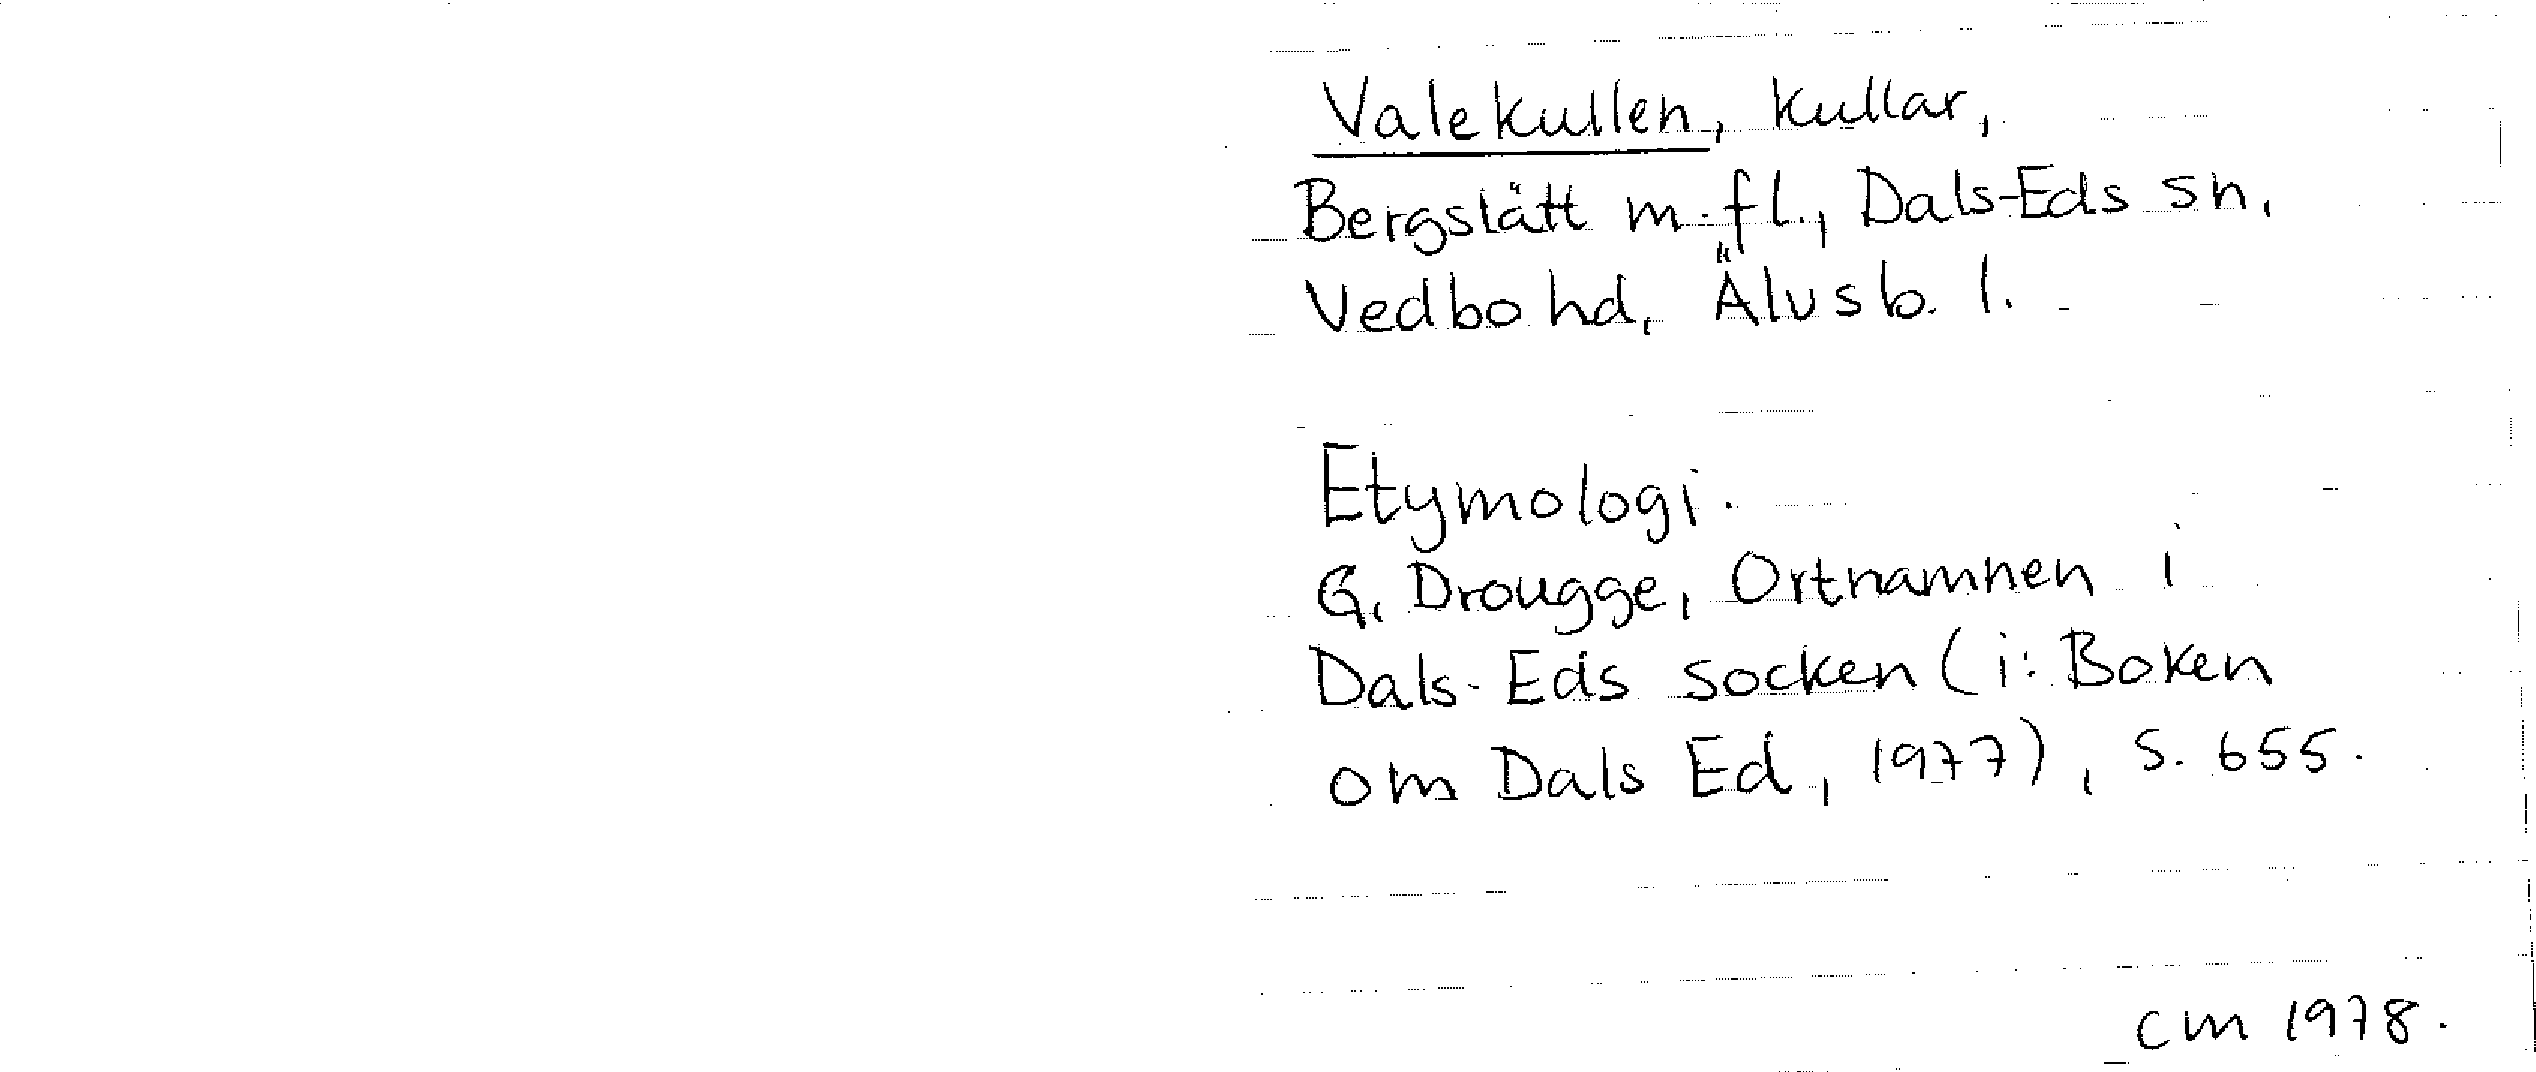 Valekullen, kullar,
Bergslätt m.fl., Dals-Eds sn,
Vedbo hd, Älvsb. l.
Etymologi.
G. Drougge, Ortnamnen i
Dals-Eds socken (i: Boken
om Dals Ed, 1977), s. 655.
CM 1978.